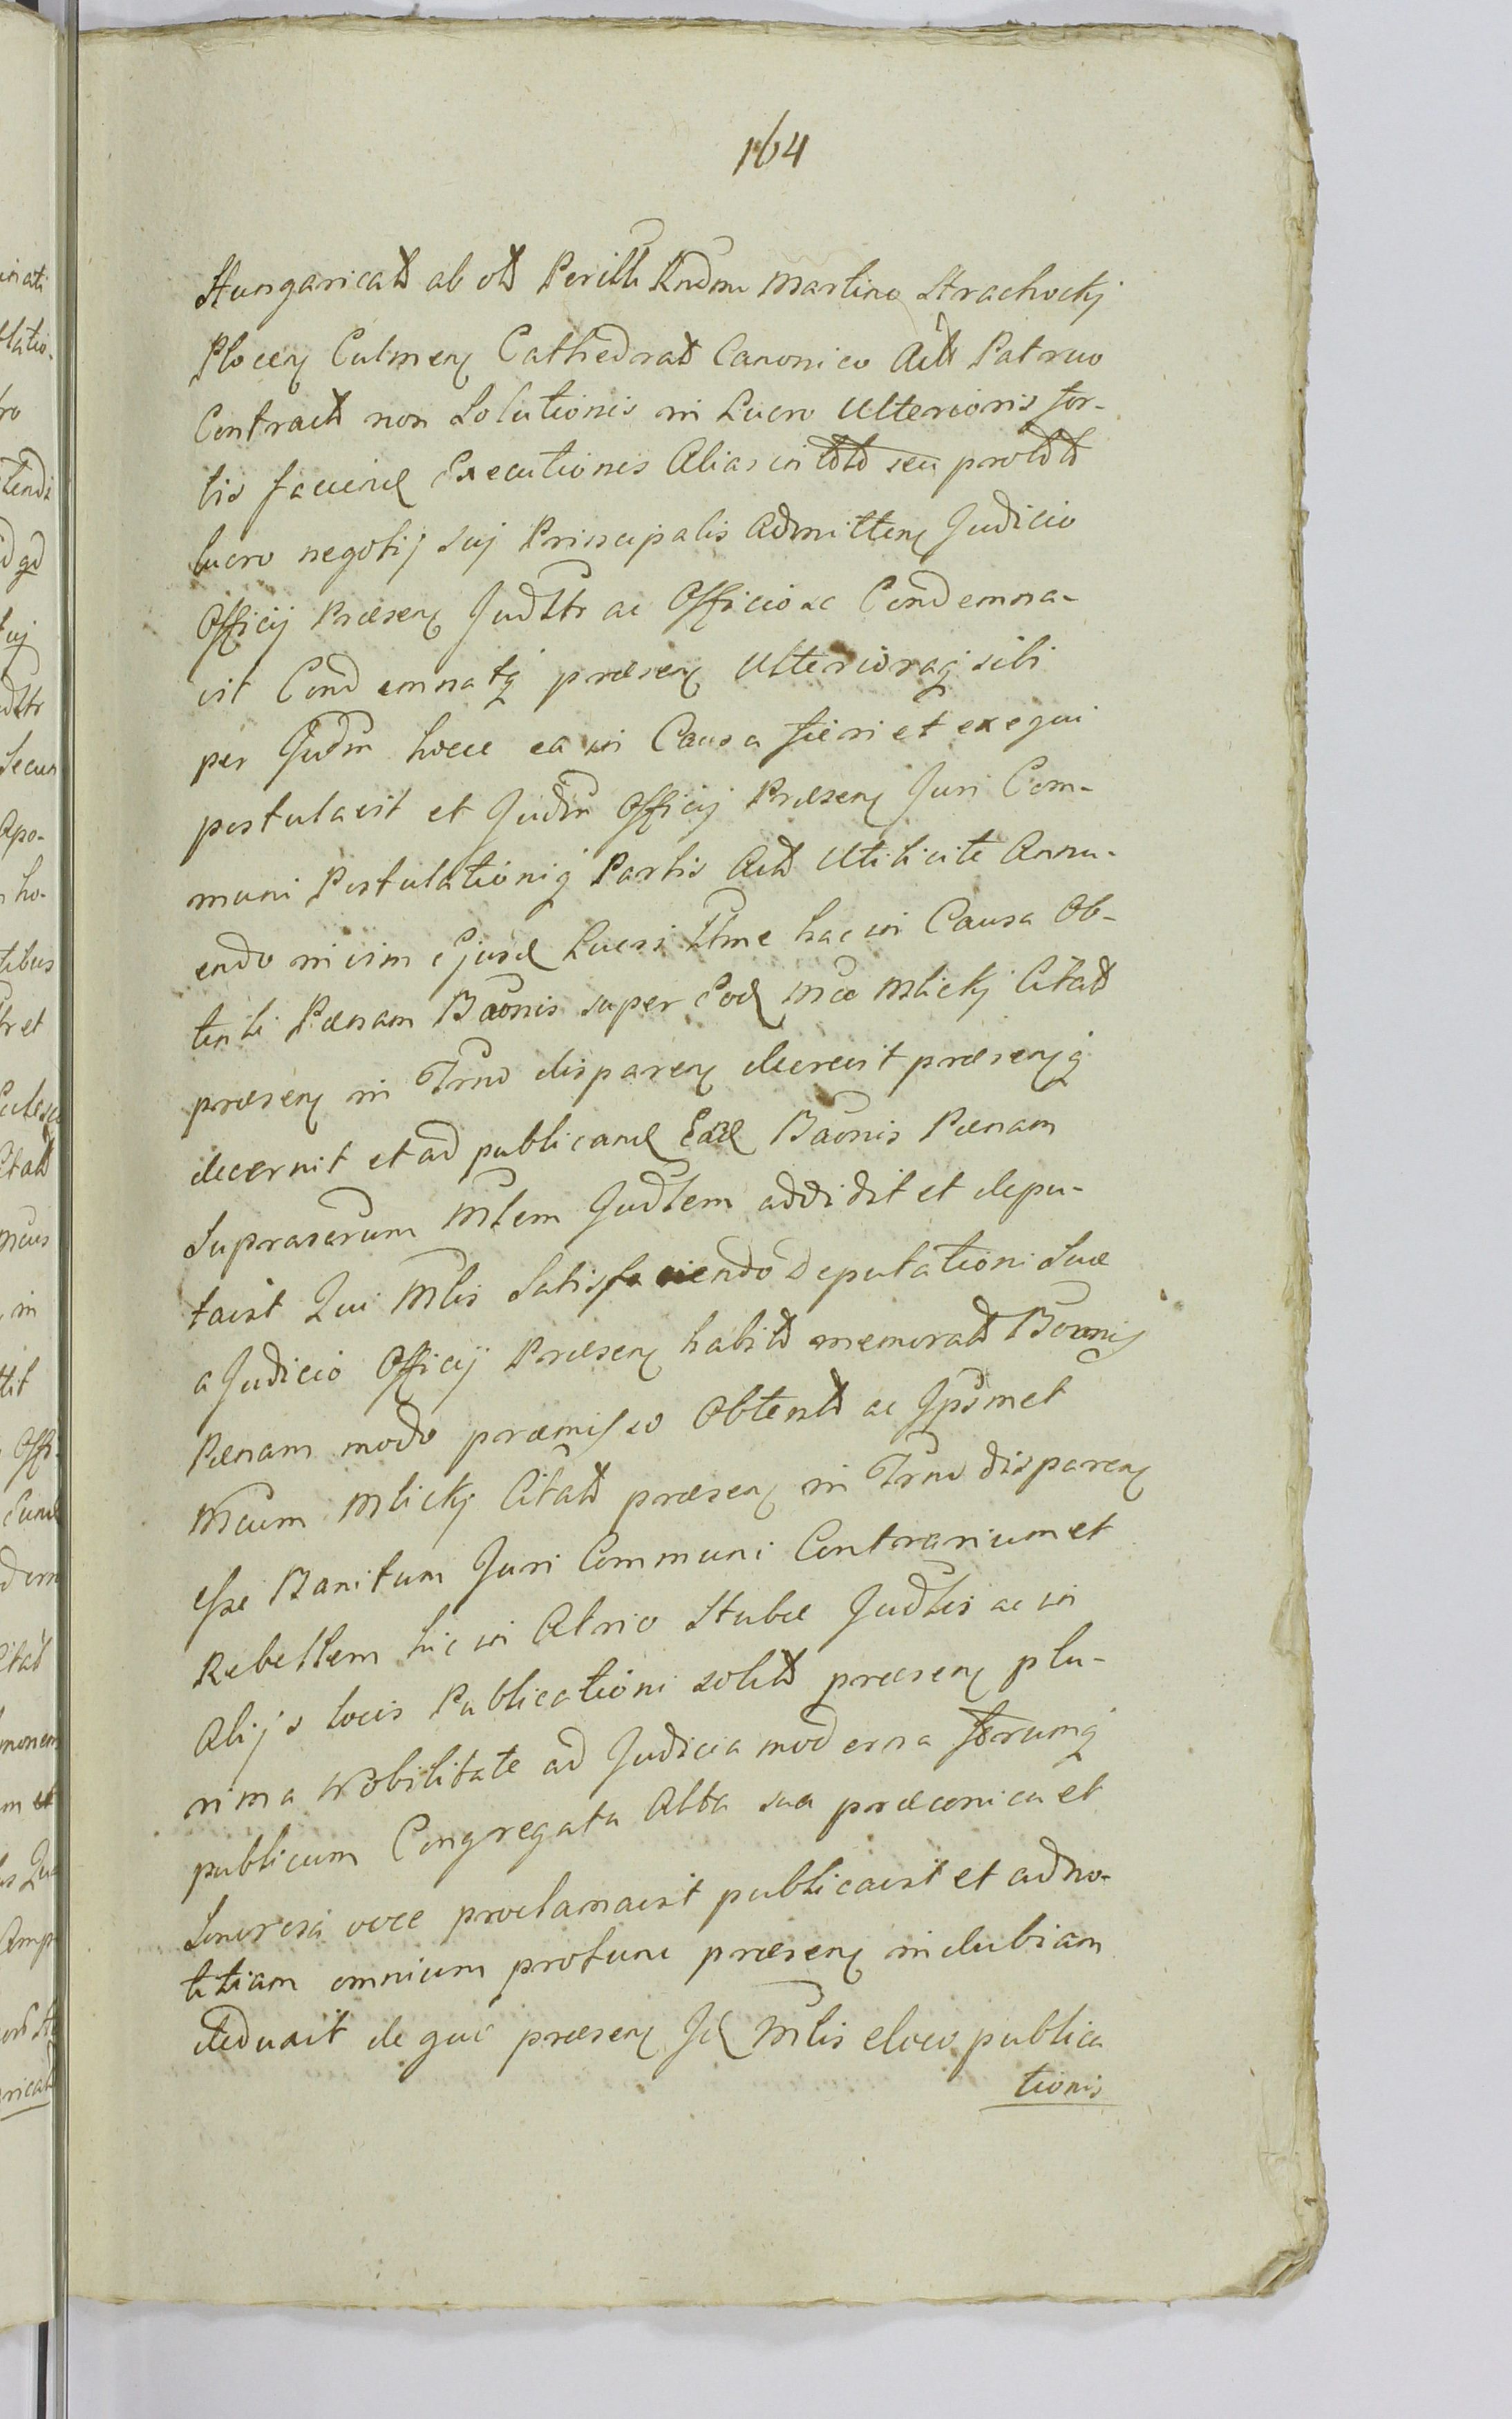 164
Hungaricalt ab olt Perilli Rndmo Martino Strachockj
Plocen Culmen Cathedralt Canonico Actt Patruo
Contractt non Solutionis in Lucro Ulterioris for-
tis faciend Executionis Alias in seu
lucro negotij suj Principalis Admitten Judicio
Officij Præsen Judttr ac Officiose Condemna-
vit Condemnatq præsen Ulterioraq sibi
per Judm hocce ea in Causa fieri et exequi
postulavit et Judm Officij Præsen Juri Com-
muni Postulationiq Partis Actt Utilicite Annu-
endo in vim ejusd Lucri ttme hac in Causa Ob-
tenti Pænam Bãonis super Eod Mco Mlickj Citatt
præsen in Trno disparen decrevit præsenq
decernit et ad publicand Eand Bãonis Pænam
Suprascrum Mlem Judlem addidit et depu-
tavit Qui Mlis Satisfaciendo Deputationi Suæ
a Judicio Officij Præsen habitt memoratt Bonnis
Pænam modo præmisso Obtentt ac Jpsmet
Mcum Mlickj Citatt præsen in Trno disparen
esse Banitum Juri Communi Contrarium et
Rebellem hic in Atrio Stubæ Judlis ac in
Alijs locis Publicationi solitt præsen plu-
rima Nobilitate ad Judicia moderna forumq
publicum Congregata Alta sua præconica et
Sonorosa voce proclamavit publicavit et ad no-
titiam omnium protunc præsen indubiam
deduxit de quo præsen Jd Mlis eloco publica
tionis